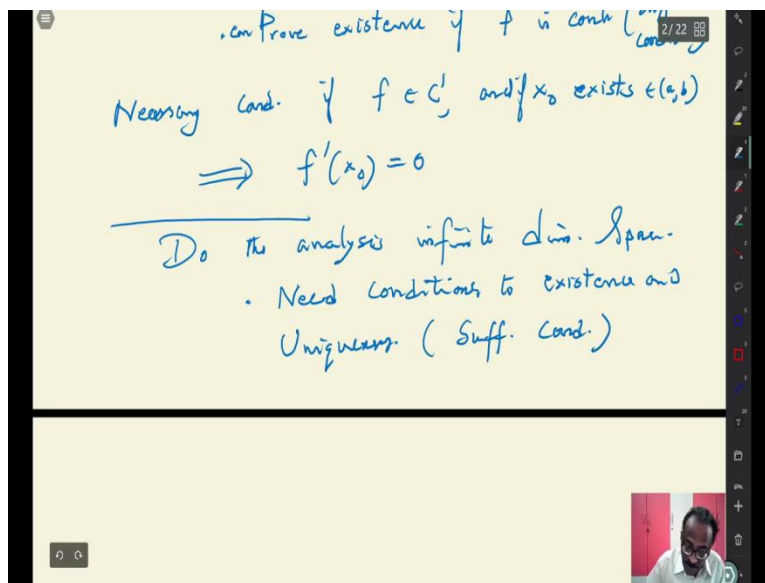 . can Prove existence if f is cont (
2/22
Necessary Cond. if f ∈ C', and if x₀ exists ∈ (a,b)
⟹ f'(x₀) = 0
Do the analysis infinite dim. Space.
. Need conditions to existence and
Uniqueness. ( Suff. Cond. )